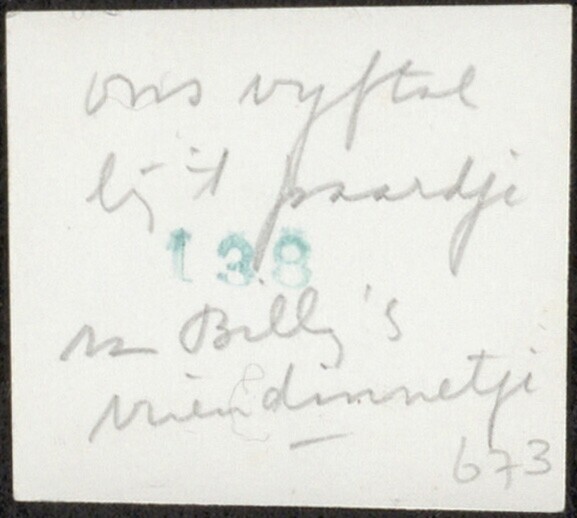 ons vyftal
bij 't paardje
138
van Billy's
vriendinnetje
673